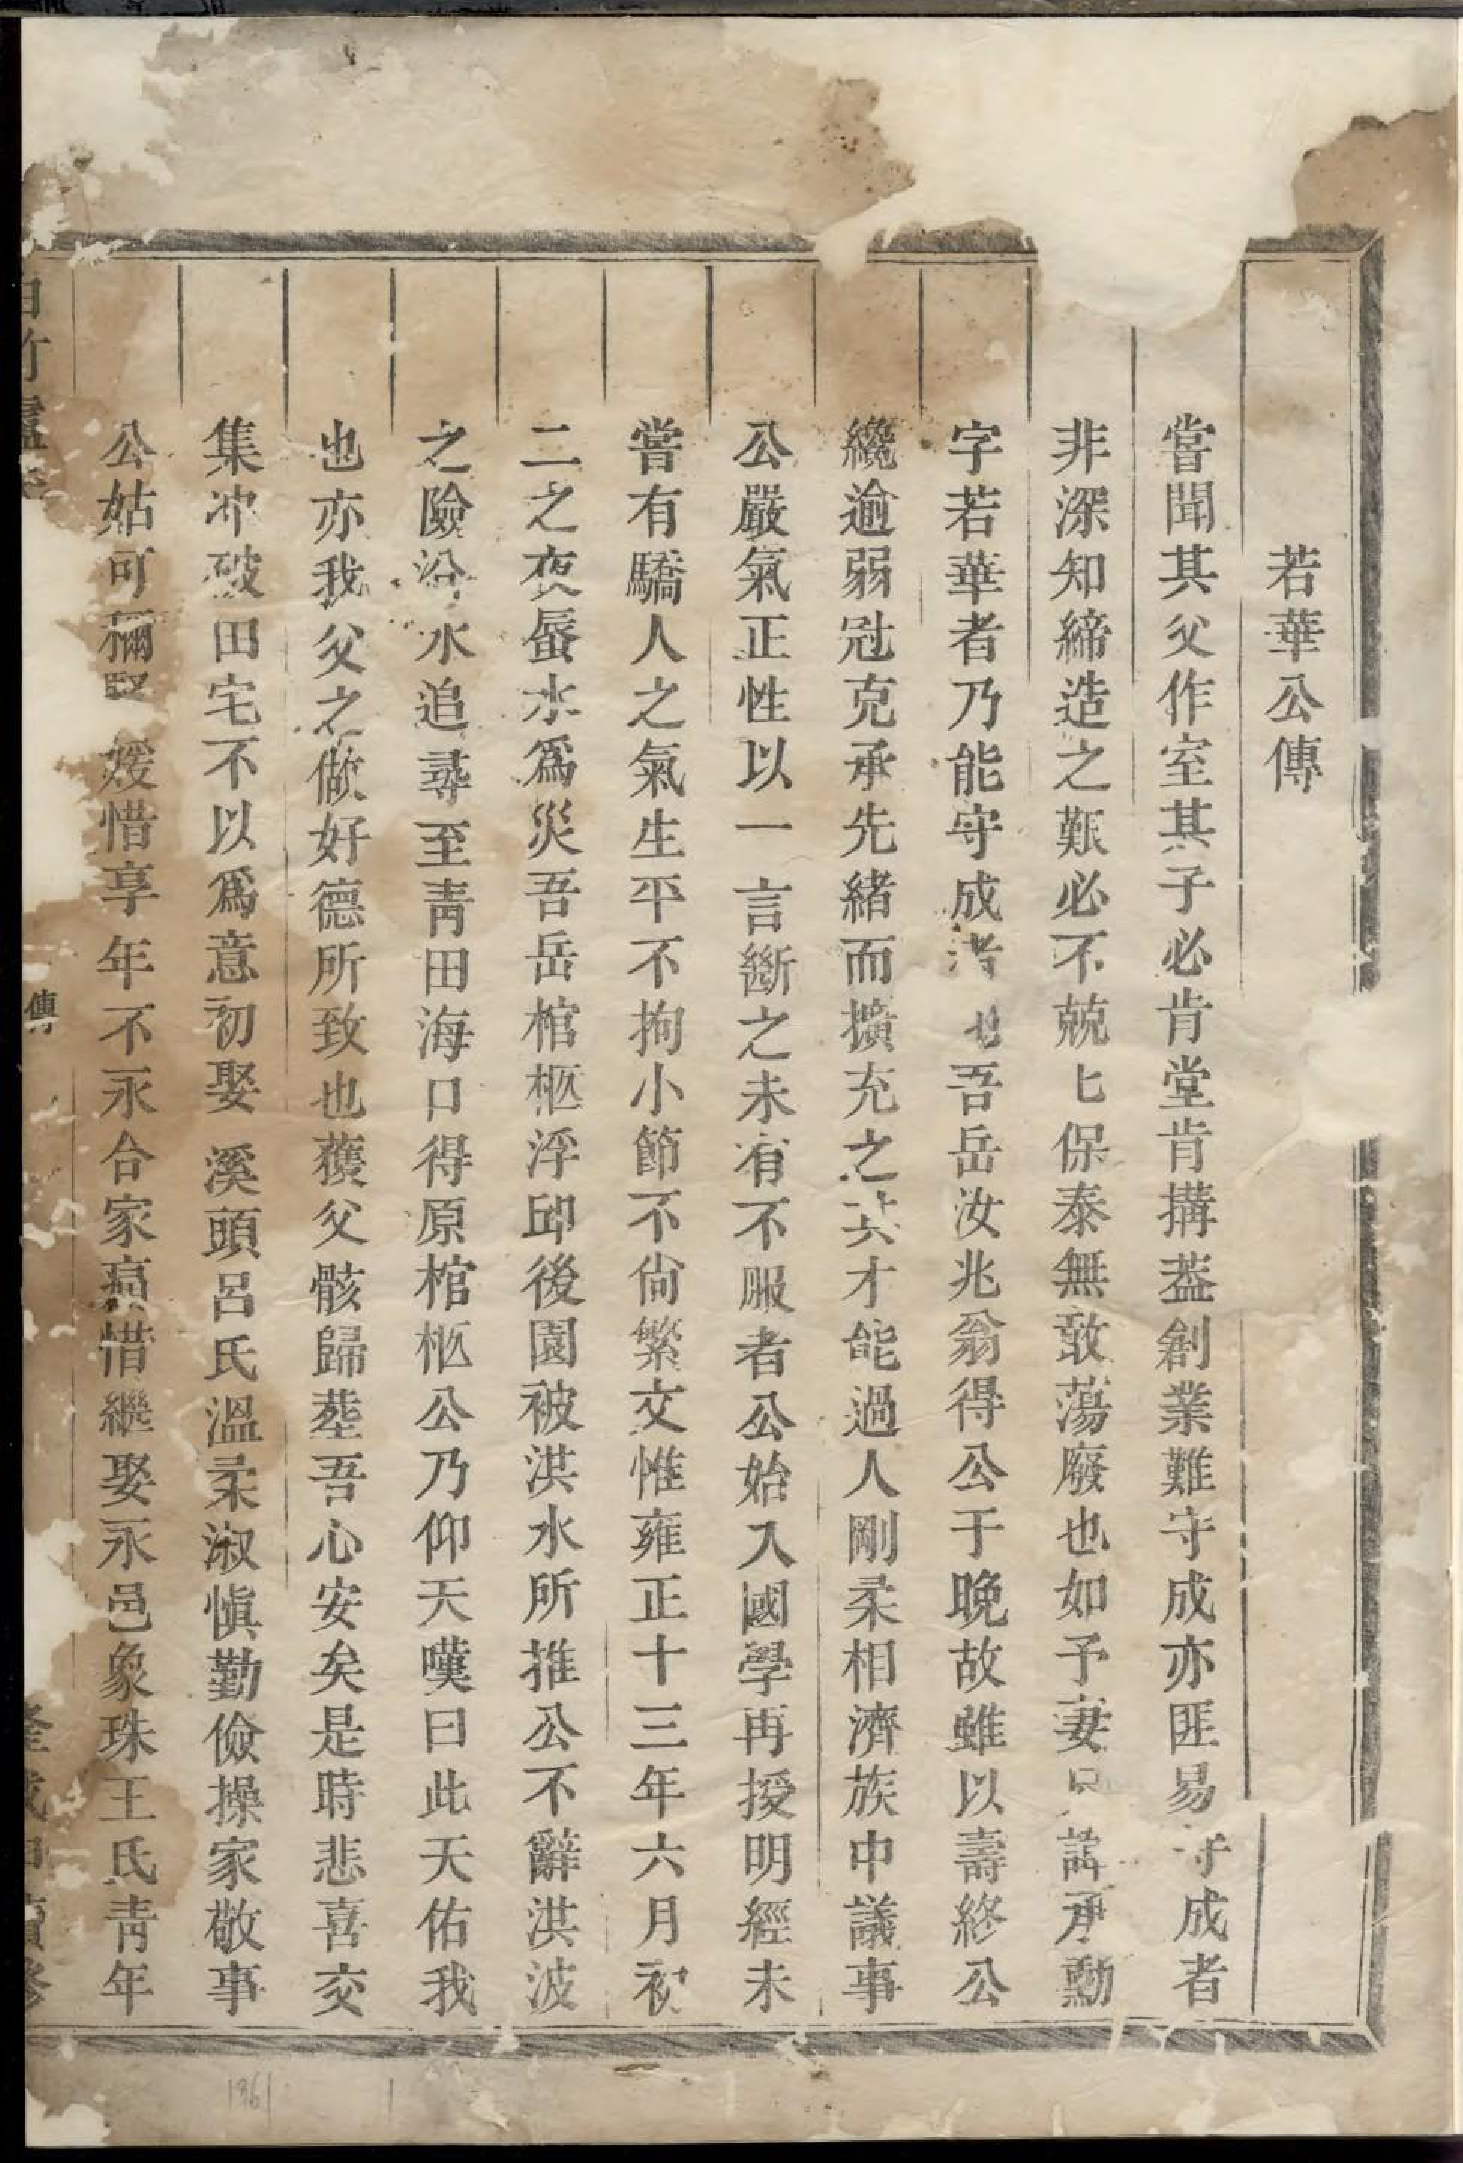 若華公傳
嘗聞其父作室其子必肯堂肯搆蓋創業難守成亦匪易守成者
非深知締造之艱必不兢匕保泰無敢蕩廢也如予妻兄諱承勳
字若華者乃能守成者也吾岳汝兆翁得公于晚故雖以壽終公
纔逾弱冠克承先緒而擴充之其才能過人剛柔相濟族中議事
公嚴氣正性以一言斷之未有不服者公始入國學再授明經未
嘗有驕人之氣生平不拘小節不尙繁文惟雍正十三年六月初
二之夜蜃水爲災吾岳棺柩浮邱後園被洪水所推公不辭洪波
之險沿水追尋至靑田海口得原棺柩公乃仰天嘆曰此天佑我
也亦我父之做好德所致也獲父骸歸塟吾心安矣是時悲喜交
集冲破田宅不以爲意初娶溪頭呂氏溫柔淑愼勤儉操家敬事
公姑可稱賢媛惜享年不永合家哀惜繼娶永邑象珠王氏靑年
傳